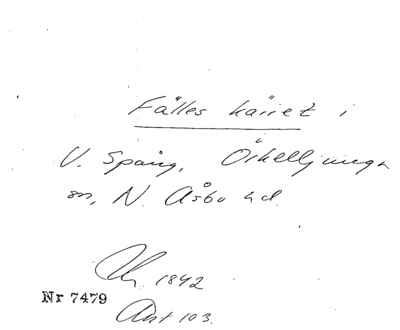 Fälles kärret i
V. Spång, Örkelljunga
sn, N. Åsbo hd.
Nr 7479
1842
Akt 103.